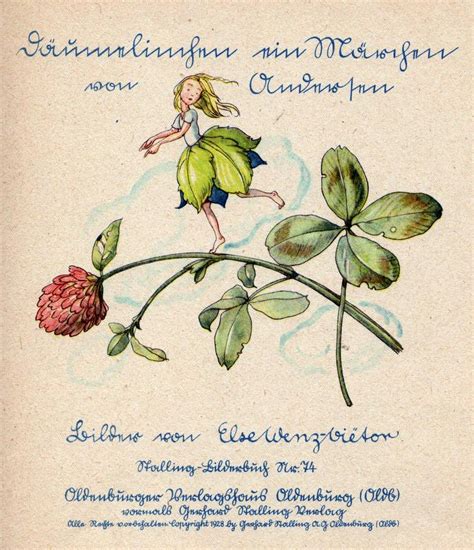 Däumelinchen ein Märchen
von Andersen
Bilder von Else Wenz-Viëtor
Stalling-Bilderbuch Nr. 74
Oldenburger Verlagshaus Oldenburg (Oldb)
vormals Gerhard Stalling Verlag
Alle Rechte vorbehalten Copyright 1928 by Gerhard Stalling A.G. Oldenburg (Oldb)